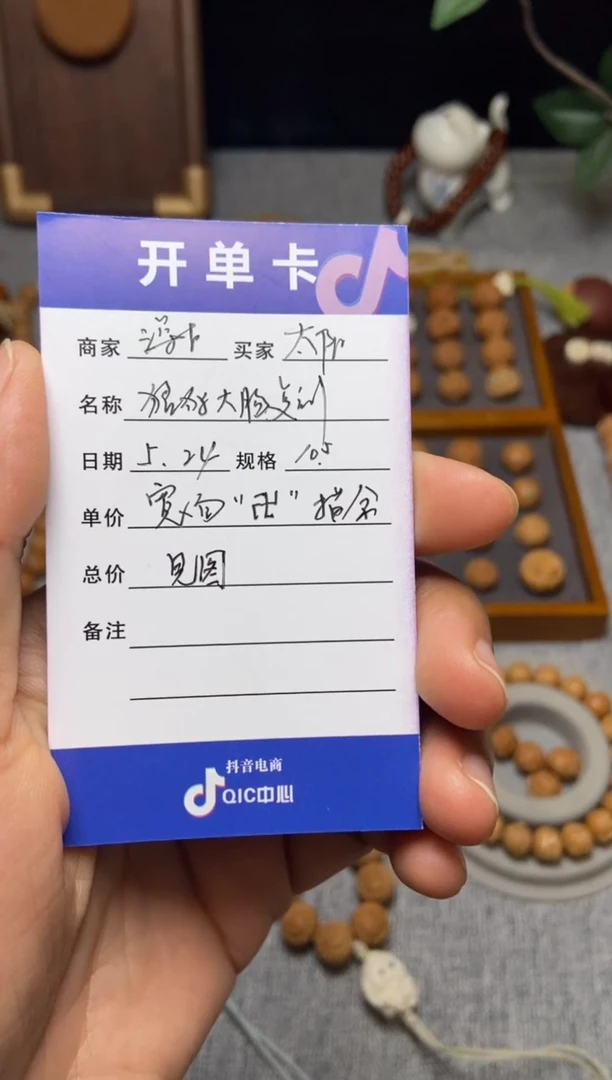 开单卡
商家 买家 太阳
名称 大肠
日期 5.24 规格 10.5
单价 “卍”
总价 见图
备注
抖音电商
QIC中心